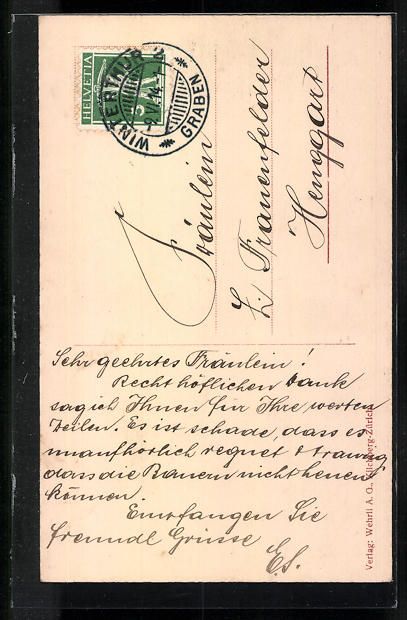 HELVETIA
WINTERTHUR
GRABEN
Fräulein
L. Frauenfelder
Henggart
Sehr geehrtes Fräulein!
Recht höflichen Dank
sag ich Ihnen für Ihre werten
Zeilen. Es ist schade, dass es
unaufhörlich regnet & traurig
dass die Bauern nicht heuen
können.
Empfangen Sie
freundl Grüsse
E.S.
Verlag: Wehrli A. G., Kilchberg-Zürich